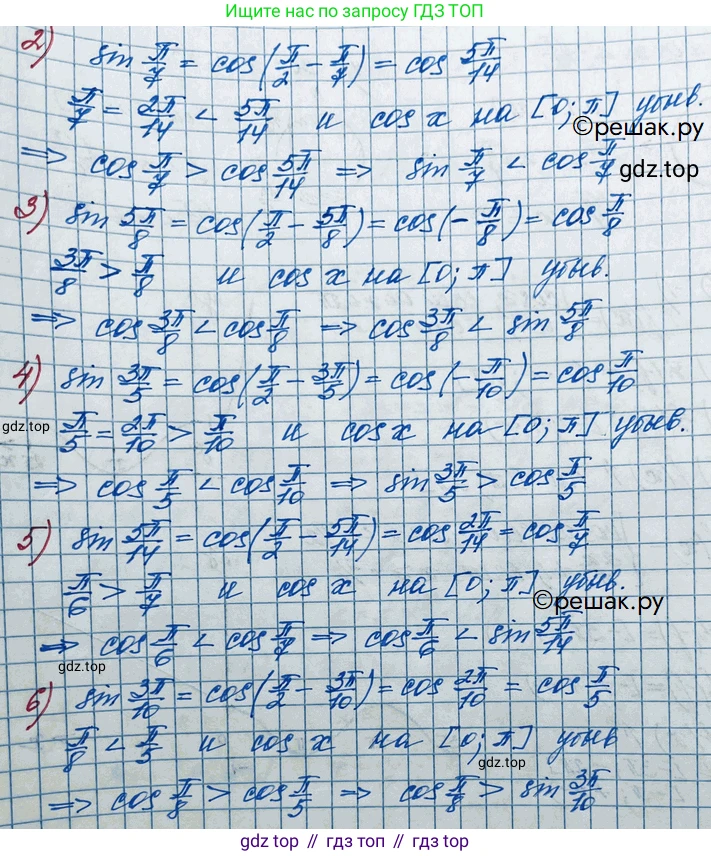 Ищите нас по запросу ГДЗ ТОП
2) sin π/7 = cos(π/2 − π/7) = cos 5π/14
π/7 = 2π/14 < 5π/14 и cos x на [0; π] убыв.
©решак.ру
⇒ cos π/7 > cos 5π/14 ⇒ sin π/7 < cos π/7
gdz.top
3) sin 5π/8 = cos(π/2 − 5π/8) = cos(−π/8) = cos π/8
3π/8 > π/8 и cos x на [0; π] убыв.
⇒ cos 3π/8 < cos π/8 ⇒ cos 3π/8 < sin 5π/8
4) sin 3π/5 = cos(π/2 − 3π/5) = cos(−π/10) = cos π/10
gdz.top
π/5 = 2π/10 > π/10 и cos x на [0; π] убыв.
⇒ cos π/5 < cos π/10 ⇒ sin 3π/5 > cos π/5
5) sin 5π/14 = cos(π/2 − 5π/14) = cos 2π/14 = cos π/7
π/6 > π/7 и cos x на [0; π] убыв.
gdz.top
©решак.ру
⇒ cos π/6 < cos π/7 ⇒ cos π/6 < sin 5π/14
gdz.top
6) sin 3π/10 = cos(π/2 − 3π/10) = cos 2π/10 = cos π/5
π/8 < π/5 и cos x на [0; π] убыв
gdz.top
⇒ cos π/8 > cos π/5 ⇒ cos π/8 > sin 3π/10
gdz top // гдз топ // gdz.top